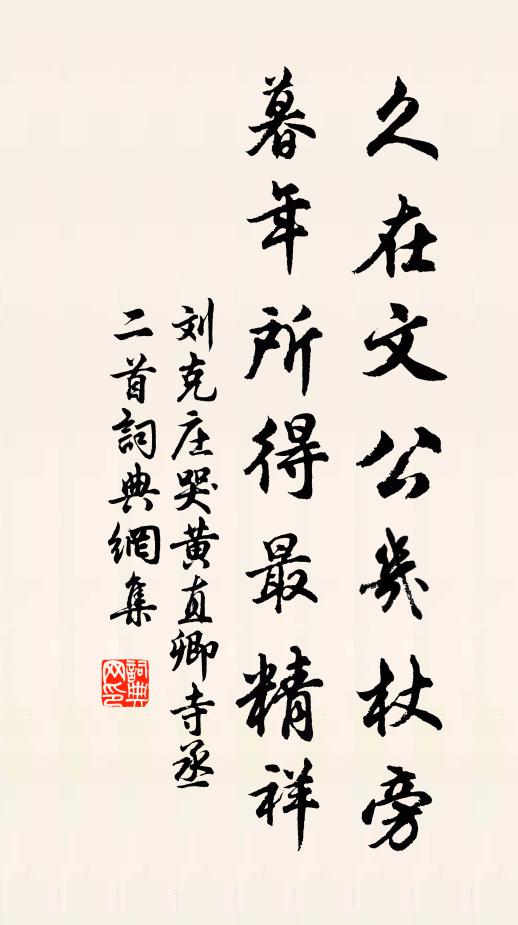 久在文公几杖旁
暮年所得最精祥
刘克庄哭黄直卿寺丞
二首詞典網集
詞典
网印